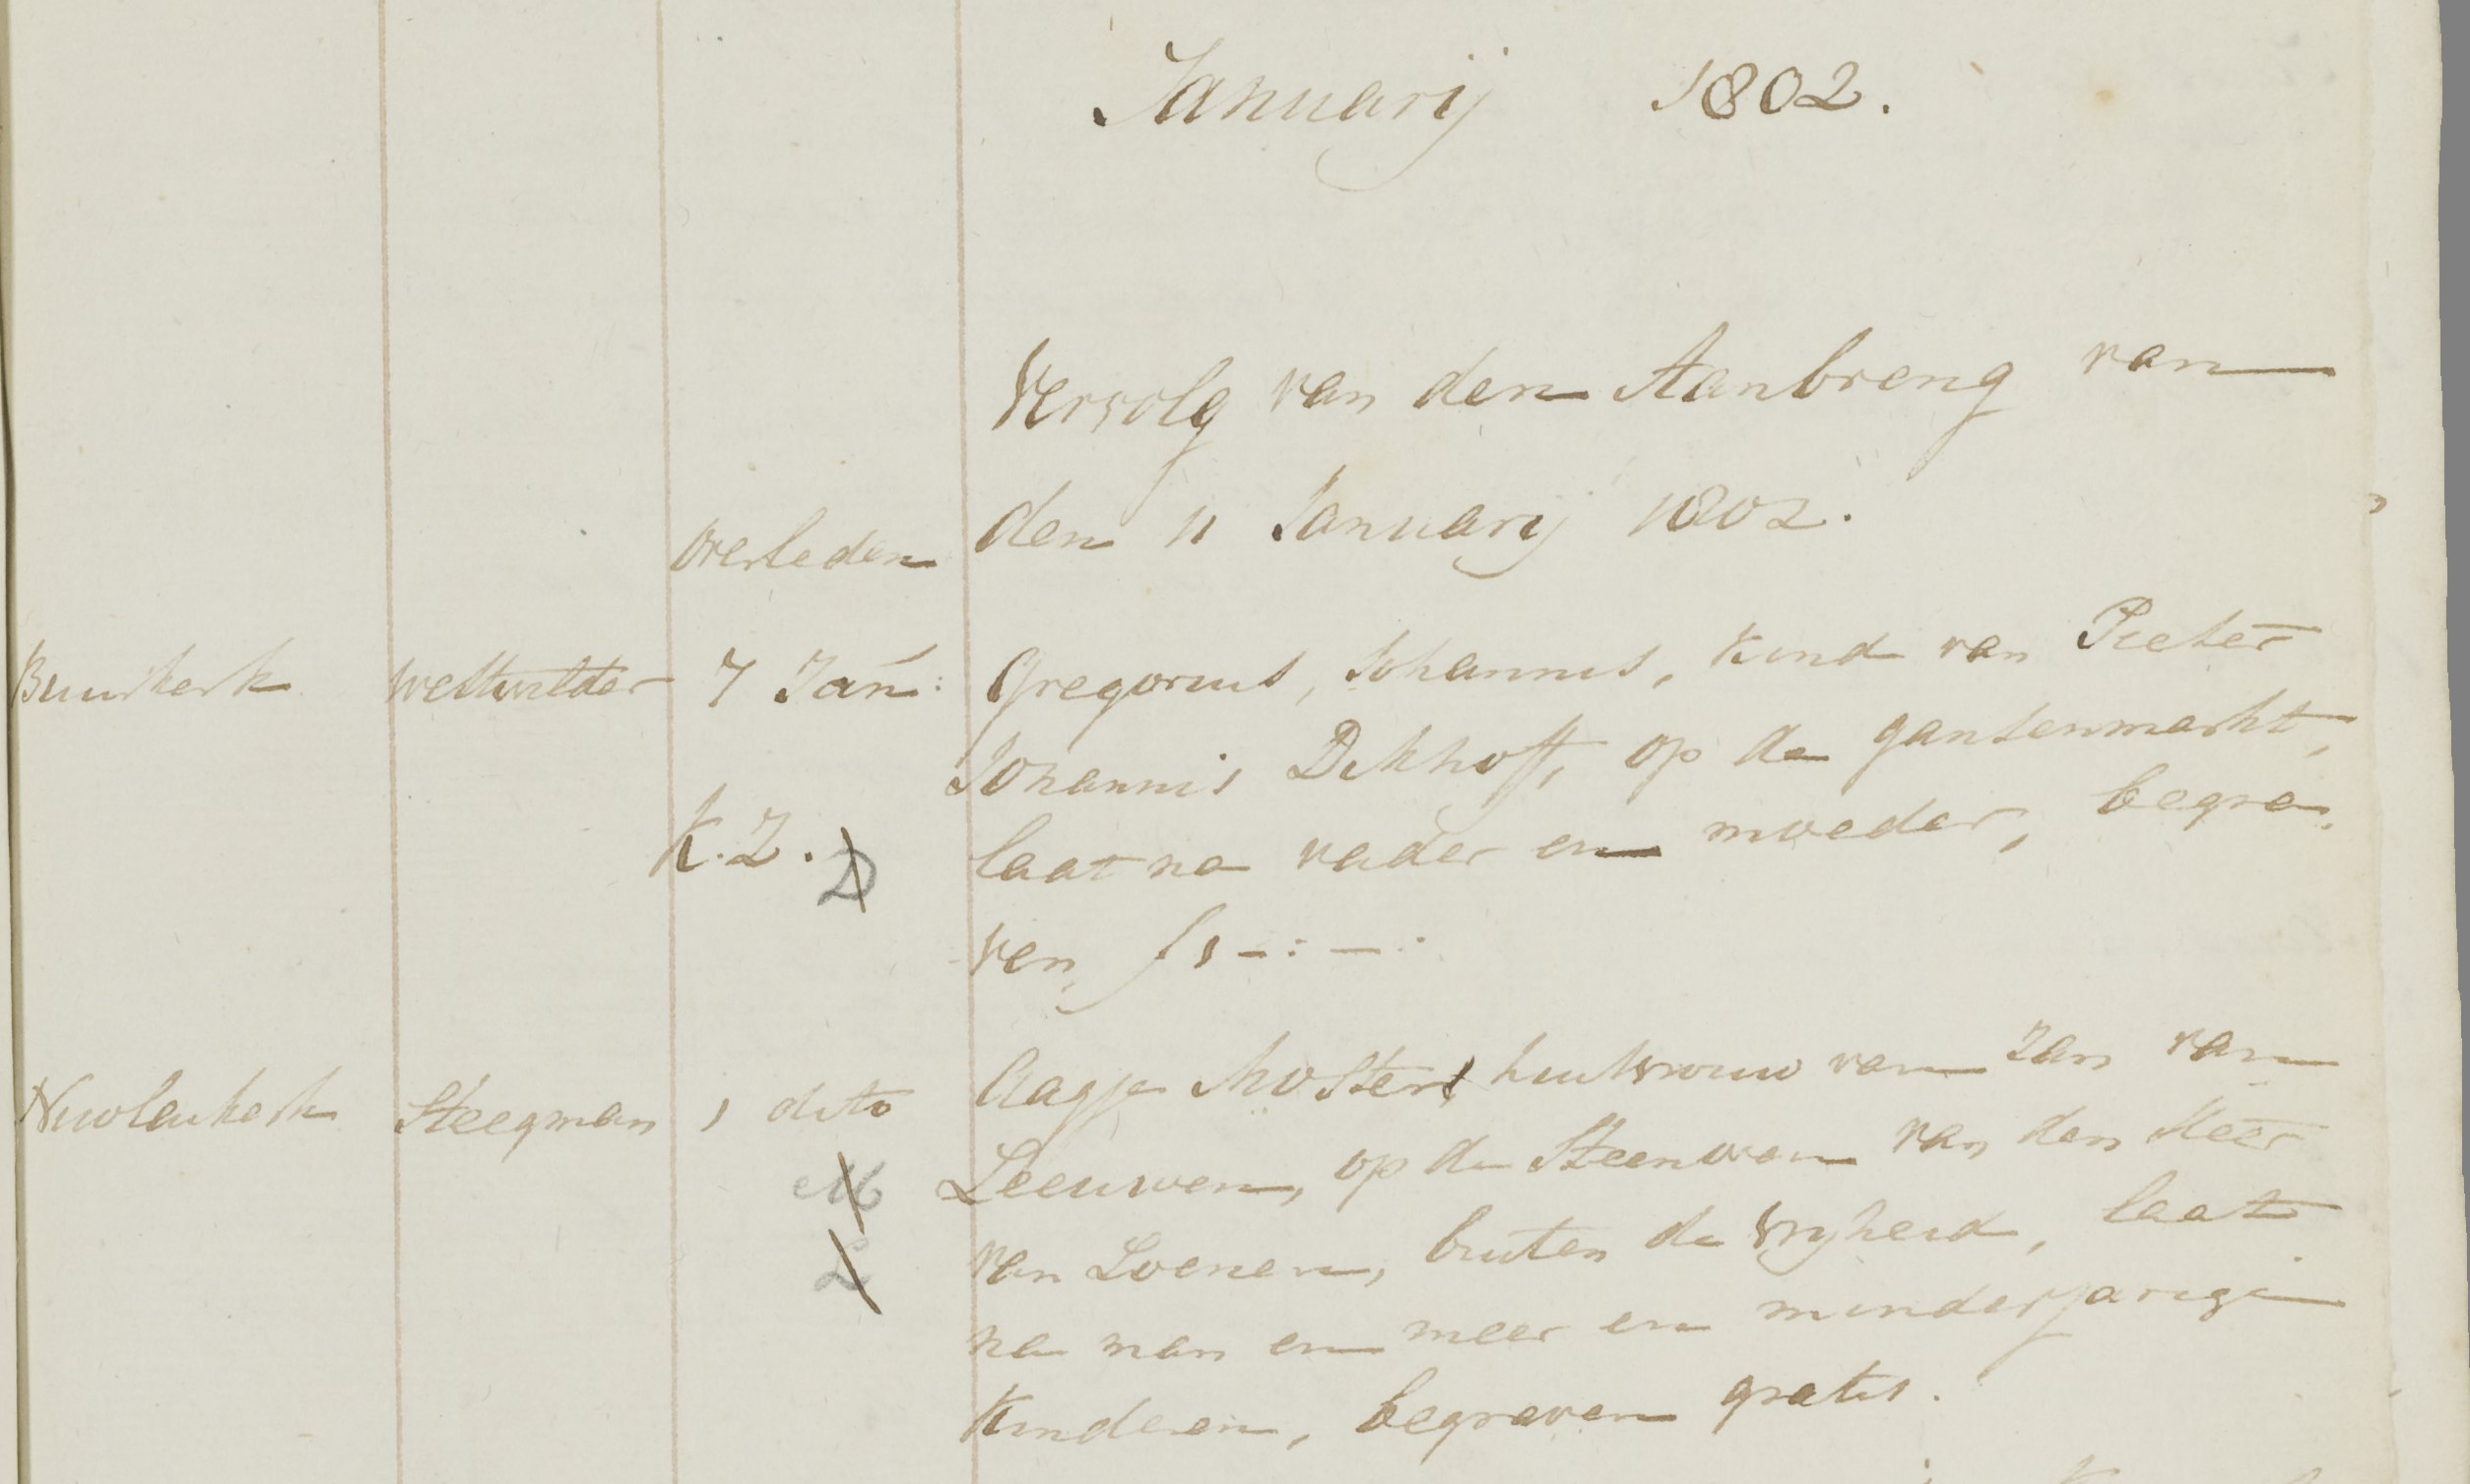 Januarij 1802.
Vervolg van den Aanbreng van
overleden den 11 Januarij 1802.
Buurkerk 7 Jan: Gregorius, Johannis, kind van Pieter
Johannis Dekhoff, op de gansenmarkt,
K. Z. D laat na vader en moeder, begra-
ven, f 1 -:-:
Nicolaikerk Steegman 1 dito Aagje Mostert, huisvrouw van Jan van
M Leeuwen, op de Steenoven van den Heer
L van Loenen, buiten de vrijheid, laat
na man en meer en minderjarige
kinderen, begraven gratis.